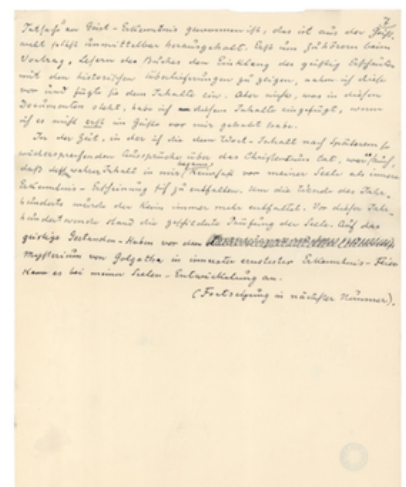 7
Tatsache" an Geist-Erkenntnis gewonnen ist, das ist aus der Geist-
welt selbst unmittelbar herausgeholt. Erst um Zuhörern beim
Vortrag, Lesern des Buches den Einklang des geistig Erschauten
mit den historischen Überlieferungen zu zeigen, nahm ich diese
vor und fügte sie dem Inhalte ein. Aber nichts, was in diesen
Dokumenten steht, habe ich diesem Inhalte eingefügt, wenn
ich es nicht erst im Geiste vor mir gehabt habe.
In der Zeit, in der ich die dem Wort-Inhalt nach Späterem so
widersprechenden Aussprüche über das Christentum tat, war es auch,
daß dessen wahrer Inhalt in mir begann keimhaft vor meiner Seele als innere
Erkenntnis-Erscheinung sich zu entfalten. Um die Wende des Jahr-
hunderts wurde der Keim immer mehr entfaltet. Vor dieser Jahr-
hundertwende stand die geschilderte Prüfung der Seele. Auf das
geistige Gestanden-Haben vor dem
Mysterium von Golgatha in innerster ernstester Erkenntnis-Feier
kam es bei meiner Seelen-Entwickelung an.
(Fortsetzung in nächster Nummer).